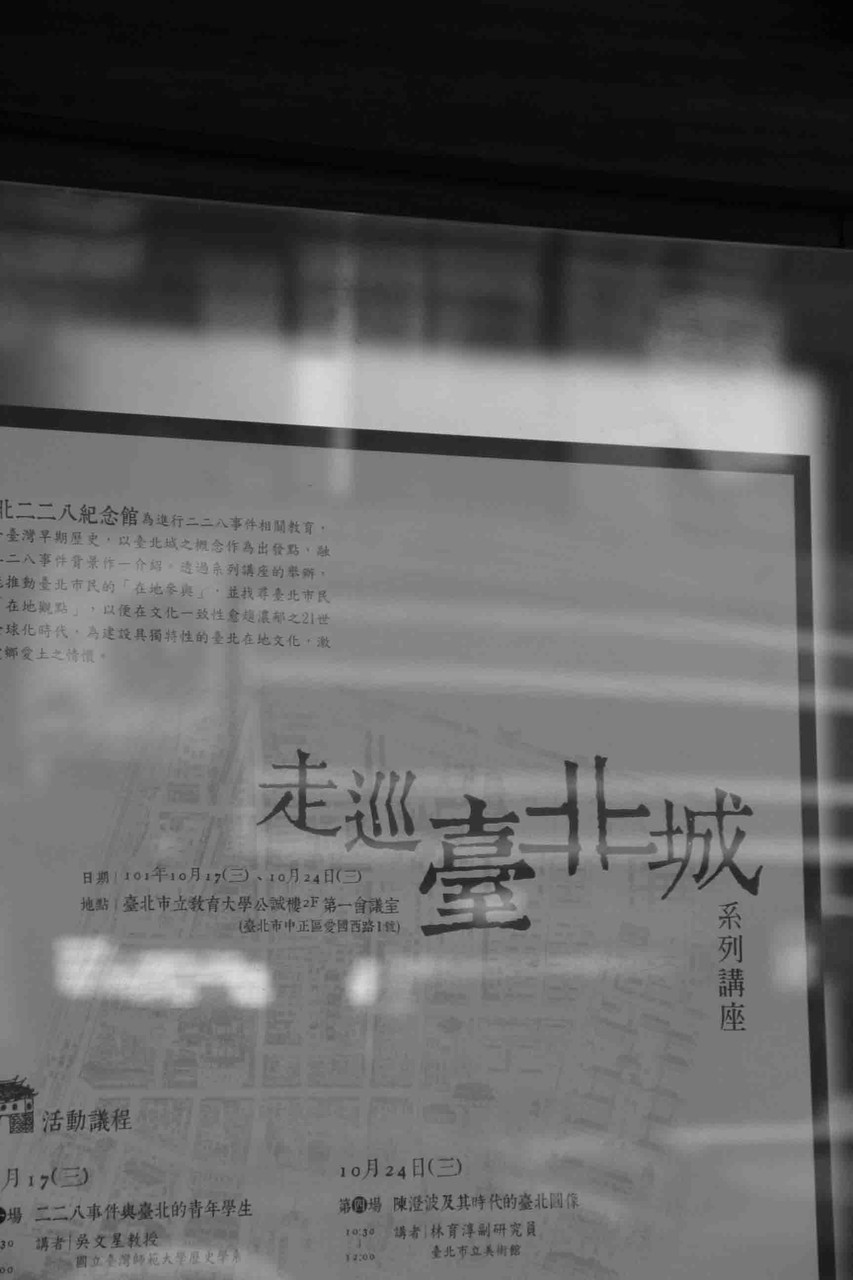 北二二八紀念館為進行二二八事件相關教育，
臺灣早期歷史，以臺北城之概念作為出發點，融
二二八事件背景作一介紹。透過系列講座的舉辦，
推動臺北市民的「在地參與」，並找尋臺北市民
「在地觀點」，以便在文化一致性愈趨濃郁之21世
球化時代，為建設具獨特性的臺北在地文化，激
鄉愛土之情懷。
走巡臺北城
系列講座
日期｜101年10月17(三)、10月24日(三)
地點｜臺北市立教育大學公誠樓2F 第一會議室
(臺北市中正區愛國西路1號)
活動議程
月17(三)
場 二二八事件與臺北的青年學生
30 講者｜吳文星教授
00 國立臺灣師範大學歷史學系
10月24日(三)
第四場 陳澄波及其時代的臺北圖像
10:30 講者｜林育淳副研究員
12:00 臺北市立美術館